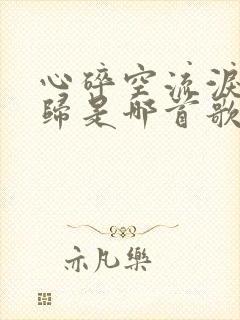 心碎空流淚
歸是哪首歌
亦凡樂